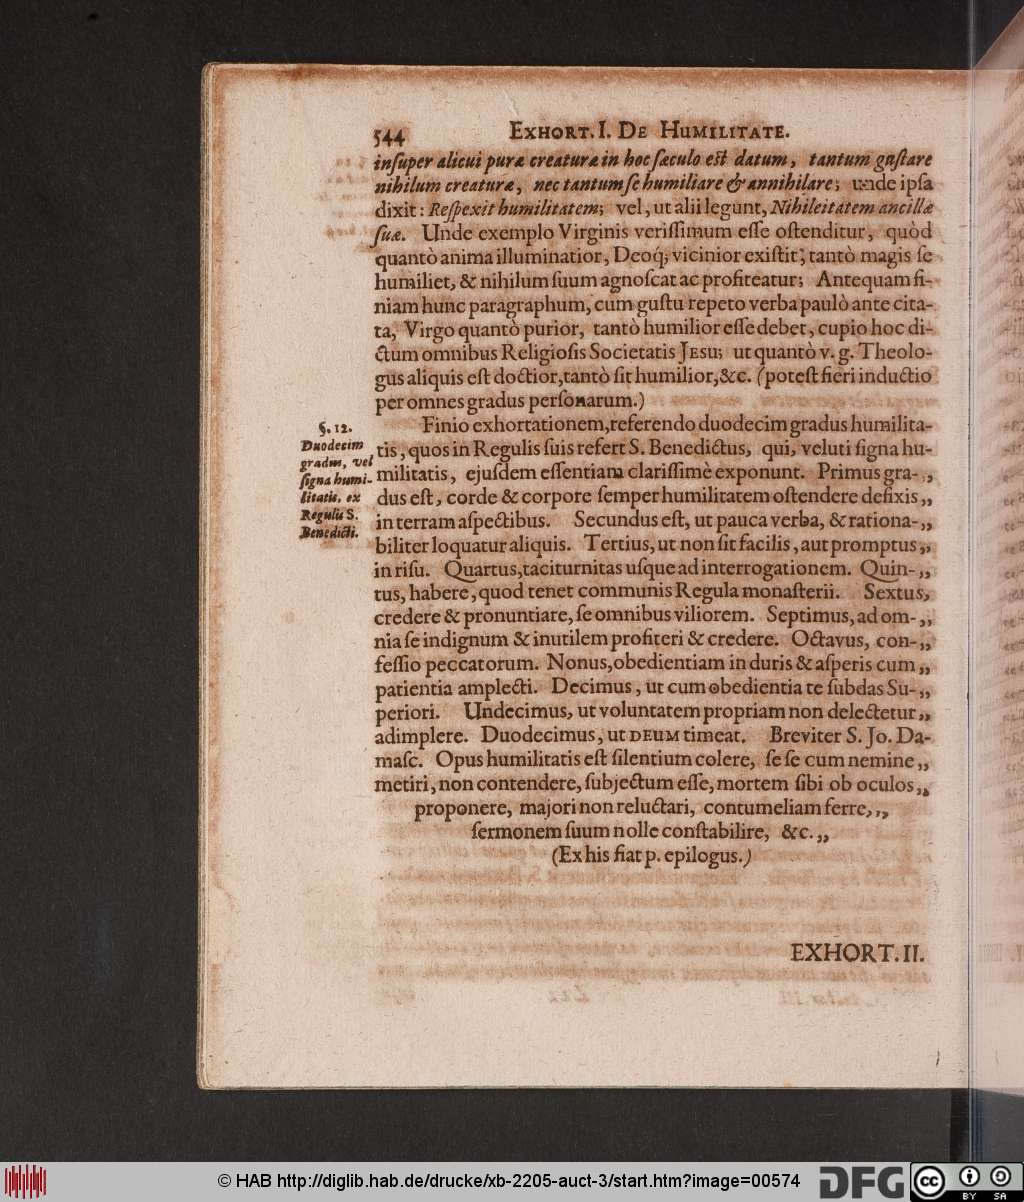 544 EXHORT. I. DE HUMILITATE.
inſuper alicui puræ creaturæ in hoc ſæculo eſt datum, tantum guſtare
nihilum creaturæ, nec tantum ſe humiliare & annihilare; unde ipſa
dixit: Reſpexit humilitatem; vel, ut alii legunt, Nihileitatem ancillæ
ſuæ. Unde exemplo Virginis veriſſimum eſſe oſtenditur, quòd
quantò anima illuminatior, Deoq́; vicinior exiſtit; tantò magis ſe
humiliet, & nihilum ſuum agnoſcat ac profiteatur; Antequam fi-
niam hunc paragraphum, cum guſtu repeto verba paulò ante cita-
ta, Virgo quantò purior, tantò humilior eſſe debet, cupio hoc di-
ctum omnibus Religioſis Societatis JESU; ut quantò v. g. Theolo-
gus aliquis eſt doctior, tantò ſit humilior, &c. (poteſt fieri inductio
per omnes gradus perſonarum.)
§. 12.
Duodecim
gradus, vel
ſigna humi-
litatis, ex
Regulis S.
Benedicti.
Finio exhortationem, referendo duodecim gradus humilita-
tis, quos in Regulis ſuis refert S. Benedictus, qui, veluti ſigna hu-
militatis, ejuſdem eſſentiam clariſſimè exponunt. Primus gra-„
dus eſt, corde & corpore ſemper humilitatem oſtendere defixis „
in terram aſpectibus. Secundus eſt, ut pauca verba, & rationa-„
biliter loquatur aliquis. Tertius, ut non ſit facilis, aut promptus „
in riſu. Quartus, taciturnitas uſque ad interrogationem. Quin-„
tus, habere, quod tenet communis Regula monaſterii. Sextus,
credere & pronuntiare, ſe omnibus viliorem. Septimus, ad om-„
nia ſe indignum & inutilem profiteri & credere. Octavus, con-„
feſſio peccatorum. Nonus, obedientiam in duris & aſperis cum „
patientia amplecti. Decimus, ut cum obedientia te ſubdas Su-„
periori. Undecimus, ut voluntatem propriam non delectetur „
adimplere. Duodecimus, ut DEUM timeat. Breviter S. Jo. Da-
maſc. Opus humilitatis eſt ſilentium colere, ſe ſe cum nemine „
metiri, non contendere, ſubjectum eſſe, mortem ſibi ob oculos „
proponere, majori non reluctari, contumeliam ferre, „
ſermonem ſuum nolle conſtabilire, &c. „
(Ex his fiat p. epilogus.)
EXHORT. II.
© HAB http://diglib.hab.de/drucke/xb-2205-auct-3/start.htm?image=00574
DFG
cc BY SA